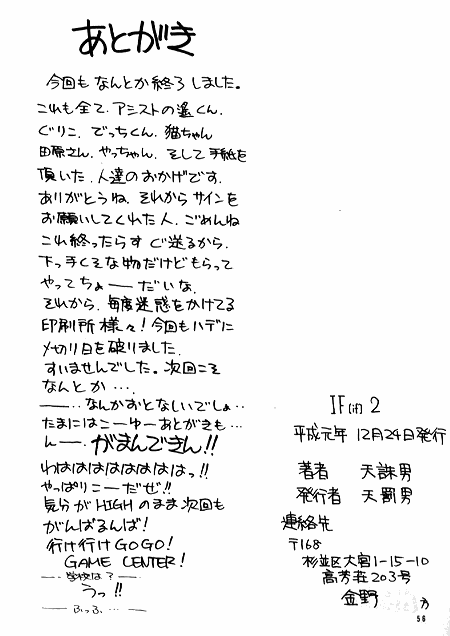 あとがき
今回も なんとか終了 しました。
これも全て、アシストの遙くん、
ぐりこ、でっちくん、猫ちゃん
田原さん、やっちゃん、そして 手紙を
頂いた、人達のおかげです。
ありがとうね、それからサインを
お願いしてくれた人、ごめんね
これ終ったらすぐ送るから、
下っ手くそな物だけどもらって
やってちょーーだいな、
それから、毎度迷惑をかけてる
印刷所 様々!今回もハデに
〆切り日を破りました、
すいませんでした。次回こそ
なんとか…、
ー‥、なんかおとなしいでしょ‥
たまにはこーゆーあとがきも…
んー、がまんできん!!
わはははははははっ!!
やっぱりこーだぜ!!
気分がHIGHのまま次回も
がんばるんば!
行け行けGOGO!
GAME CENTER!
ー‥学校は?ー
うっ!!
ー ふっふ…ー
IF(if) 2
平成元年 12月24日発行
著者 天誅男
発行者 天罰男
連絡先
〒168
杉並区大宮1-15-10
高芳荘203号
金野 カ
56